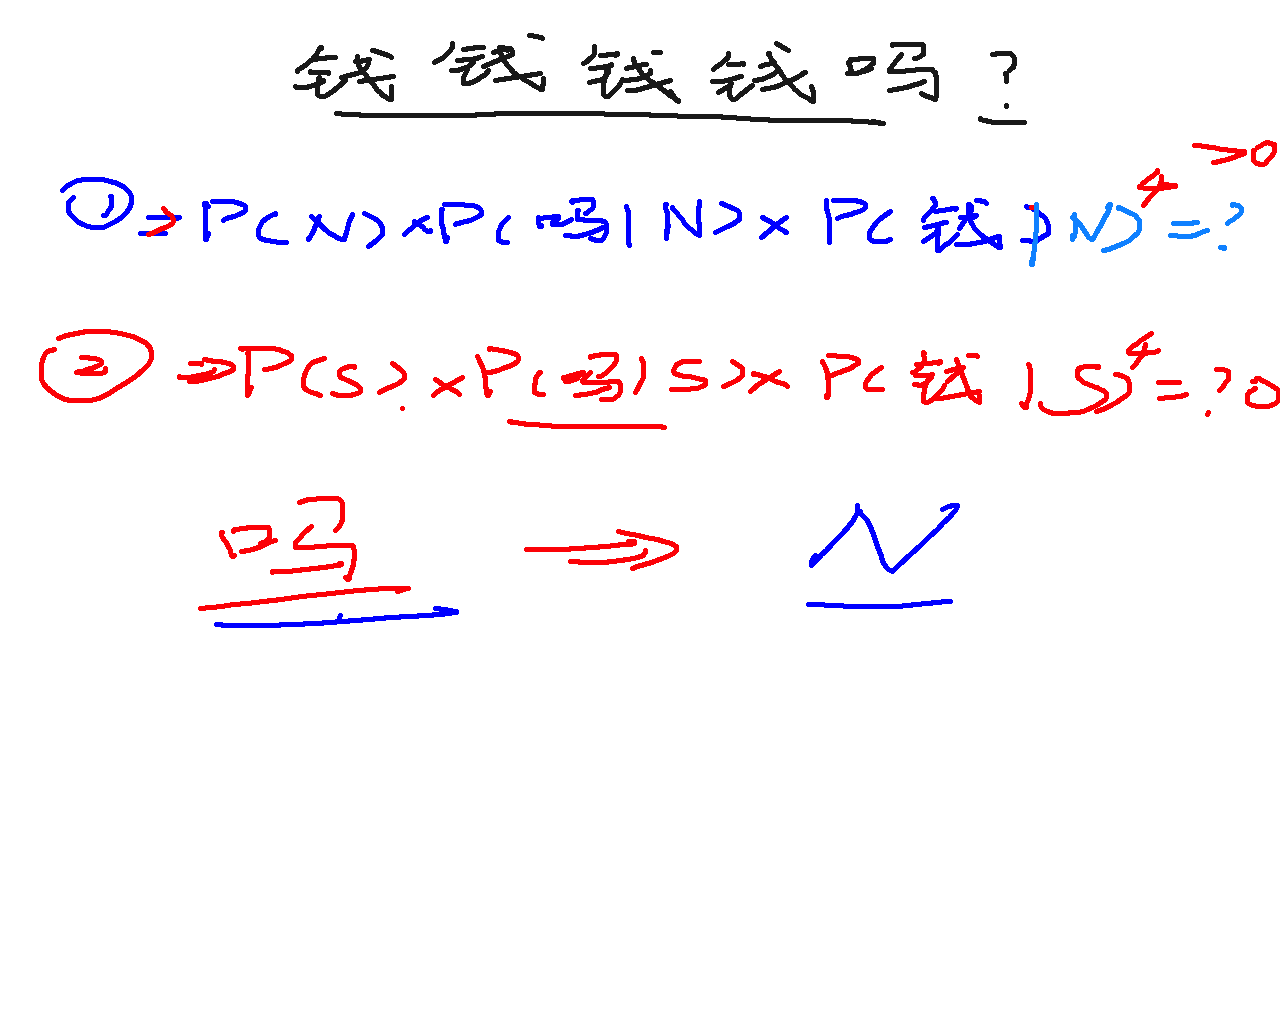 钱钱钱钱吗?
① ⇒ P(N) × P(吗|N) × P(钱|N)⁴ = ? >0
② ⇒ P(S) × P(吗|S) × P(钱|S)⁴ = ? 0
吗 ⇒ N